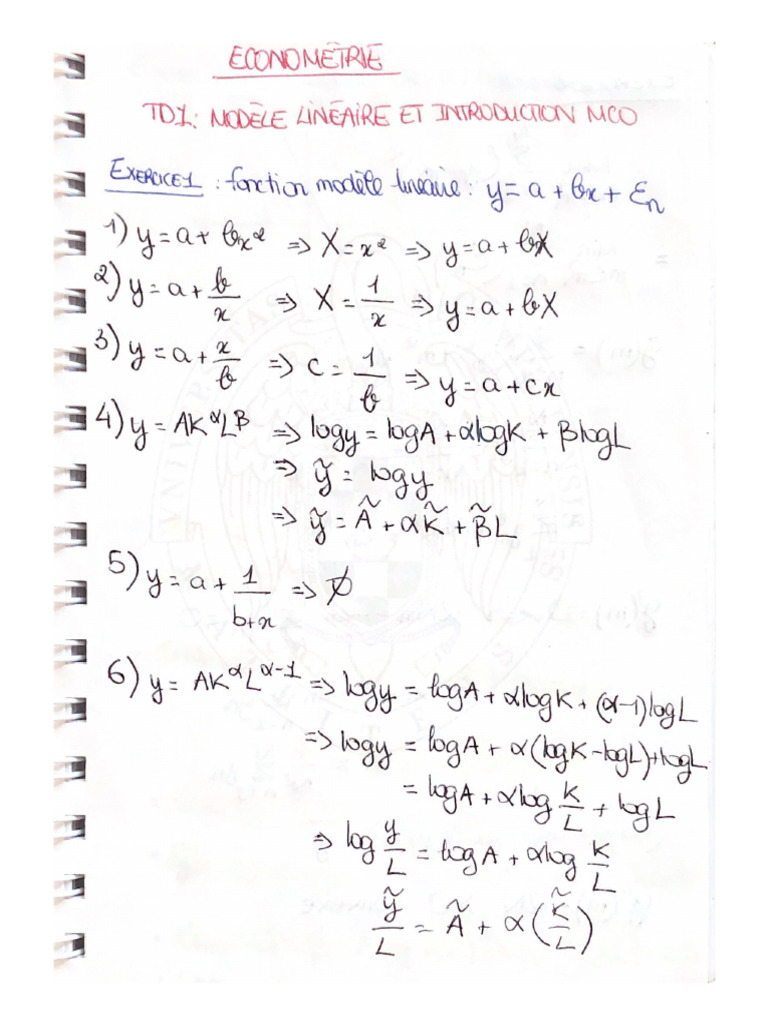 ECONOMÉTRIE
TD1: MODÈLE LINÉAIRE ET INTRODUCTION MCO
EXERCICE 1 : fonction modèle linéaire : y = a + bx + Ɛn
1) y = a + bx² => X = x² => y = a + bX
2) y = a + b/x => X = 1/x => y = a + bX
3) y = a + x/b => c = 1/b => y = a + cx
4) y = AK^α L^β => logy = logA + αlogK + βlogL
=> ỹ = logy
=> ỹ = Ã + αK̃ + β̃L
5) y = a + 1/(b+x) => ∅
6) y = AK^α L^(α-1) => logy = logA + αlogK + (α-1)logL
=> logy = logA + α(logK - logL) + logL
= logA + αlog K/L + logL
=> log y/L = logA + αlog K/L
ỹ/L = Ã + α(K̃/L)